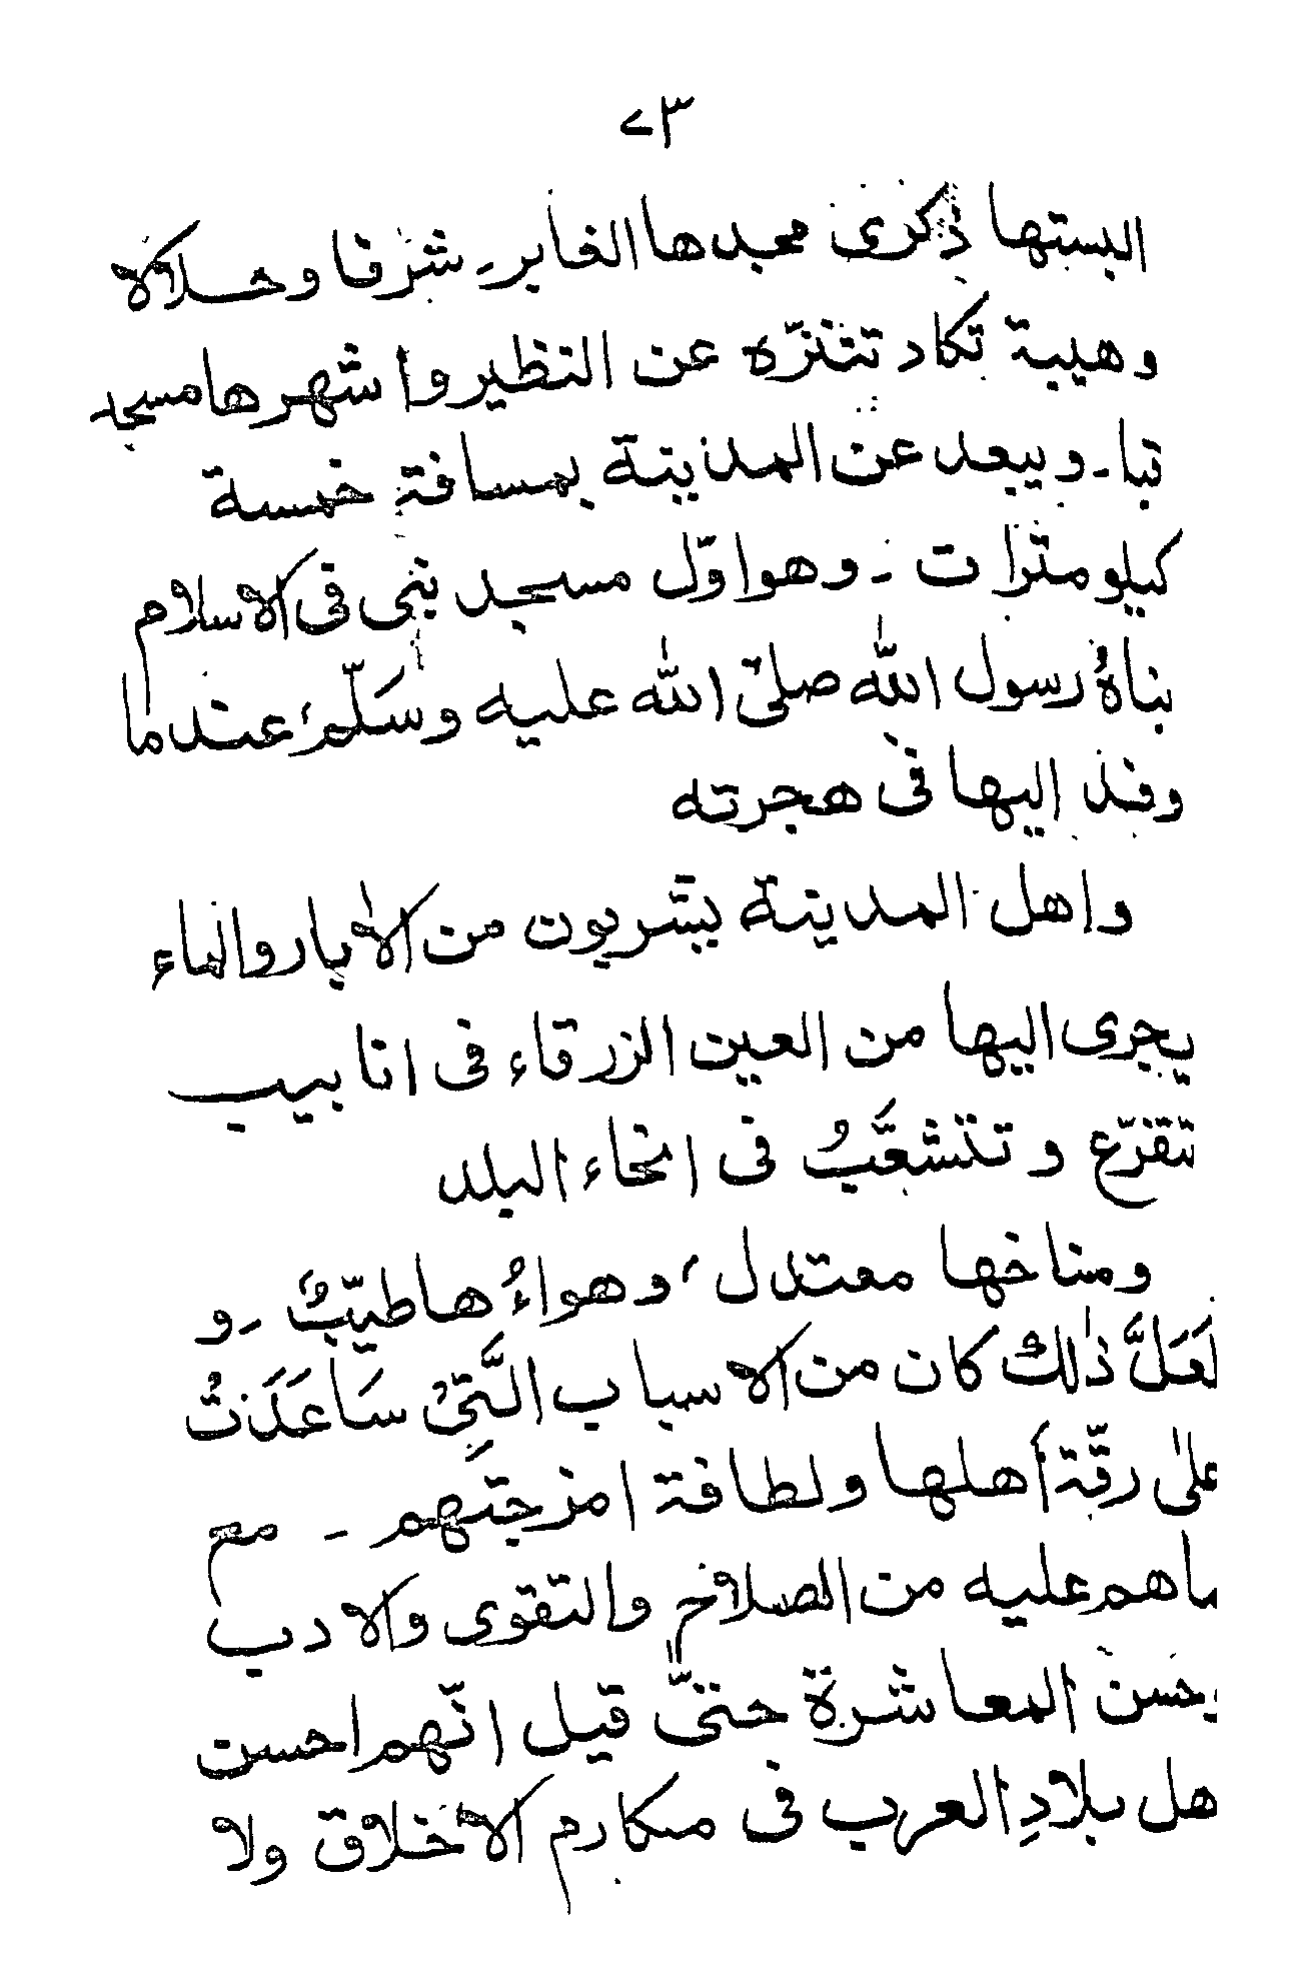 ٧٣
البستها ذكرى مجدها الغابر ـ شرفا وجلالا
وهيبة تكاد تتنزّه عن النظير واشهرها مسجد
قبا ـ ويبعد عن المدينة بمسافة خمسة
كيلومترات ـ وهو اوّل مسجد بنى فى الاسلام
بناهُ رسول الله صلى الله عليه وسَلّم، عندما
وفد إليها فى هجرته
واهل المدينة يشربون من الآبار والماء
يجرى اليها من العين الزرقاء فى انابيب
تتفرّع وتتشعَّبُ فى انحاء البلد
ومناخها معتدل، وهواءُها طيّبٌ ـ و
لَعَلَّ ذٰلك كان من الاسباب الَّتِىْ سَاعَدَتْ
على رقّة أهلها ولطافة امزجتهم ـ مع
ماهم عليه من الصلاح والتقوى والادب
وحسن المعاشرة حتىّ قيل انّهم احسن
اهل بلادِ العرب فى مكارم الاخلاق ولا